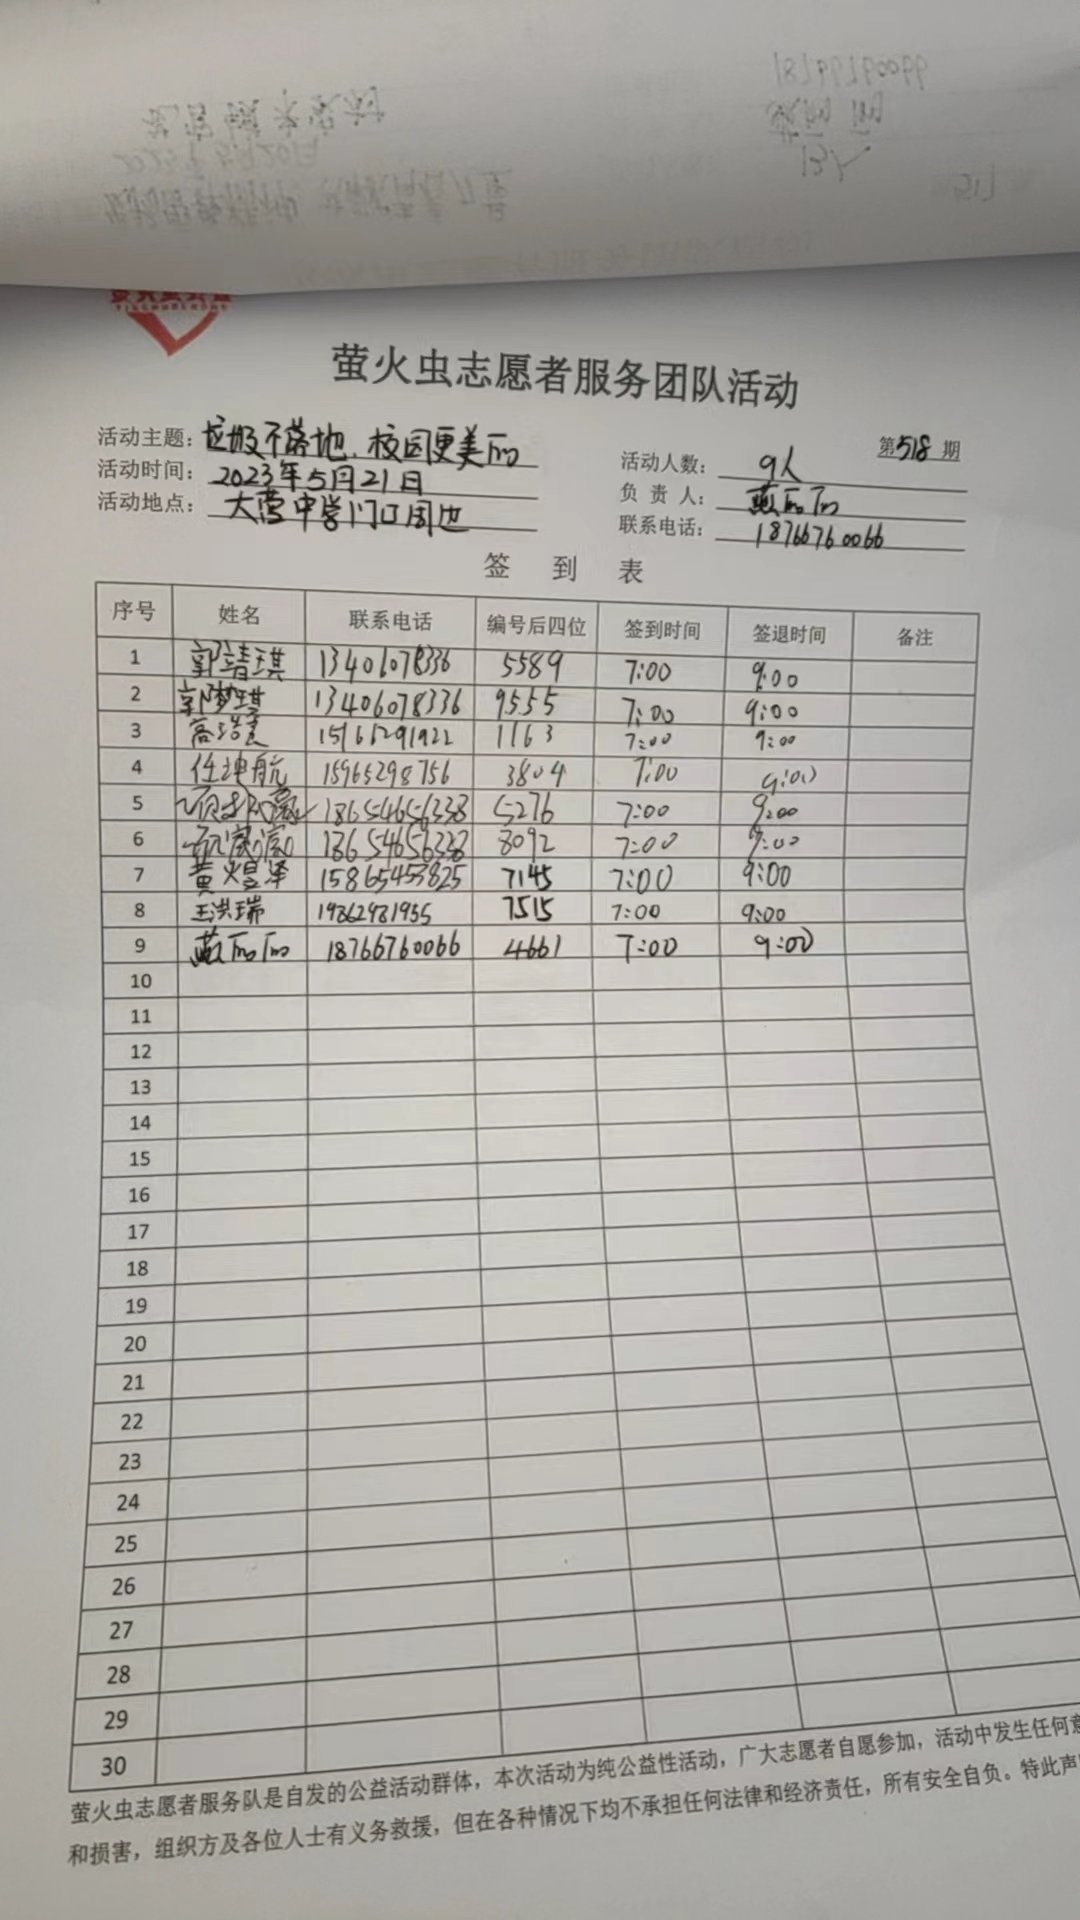 萤火虫志愿者服务团队活动
第518期
活动主题：垃圾不落地、校园更美丽
活动人数：9人
活动时间：2023年5月21日
负 责 人：燕丽丽
活动地点：大营中学门口周边
联系电话：18766760066
签 到 表
序号 姓名 联系电话 编号后四位 签到时间 签退时间 备注
1 郭靖琪 13406078336 5589 7:00 9:00
2 郭梦琪 13406078336 9555 7:00 9:00
3 1163 7:00 9:00
4 任坤航 15965298756 3804 7:00 9:00
5 18654656338 5276 7:00 9:00
6 18654656338 8092 7:00 9:00
7 黄煜泽 15865453825 7145 7:00 9:00
8 王洪瑞 19862981955 7515 7:00 9:00
9 燕丽丽 18766760066 4661 7:00 9:00
10
11
12
13
14
15
16
17
18
19
20
21
22
23
24
25
26
27
28
29
30
萤火虫志愿者服务队是自发的公益活动群体，本次活动为纯公益性活动，广大志愿者自愿参加，活动中发生任何意
和损害，组织方及各位人士有义务救援，但在各种情况下均不承担任何法律和经济责任，所有安全自负。特此声